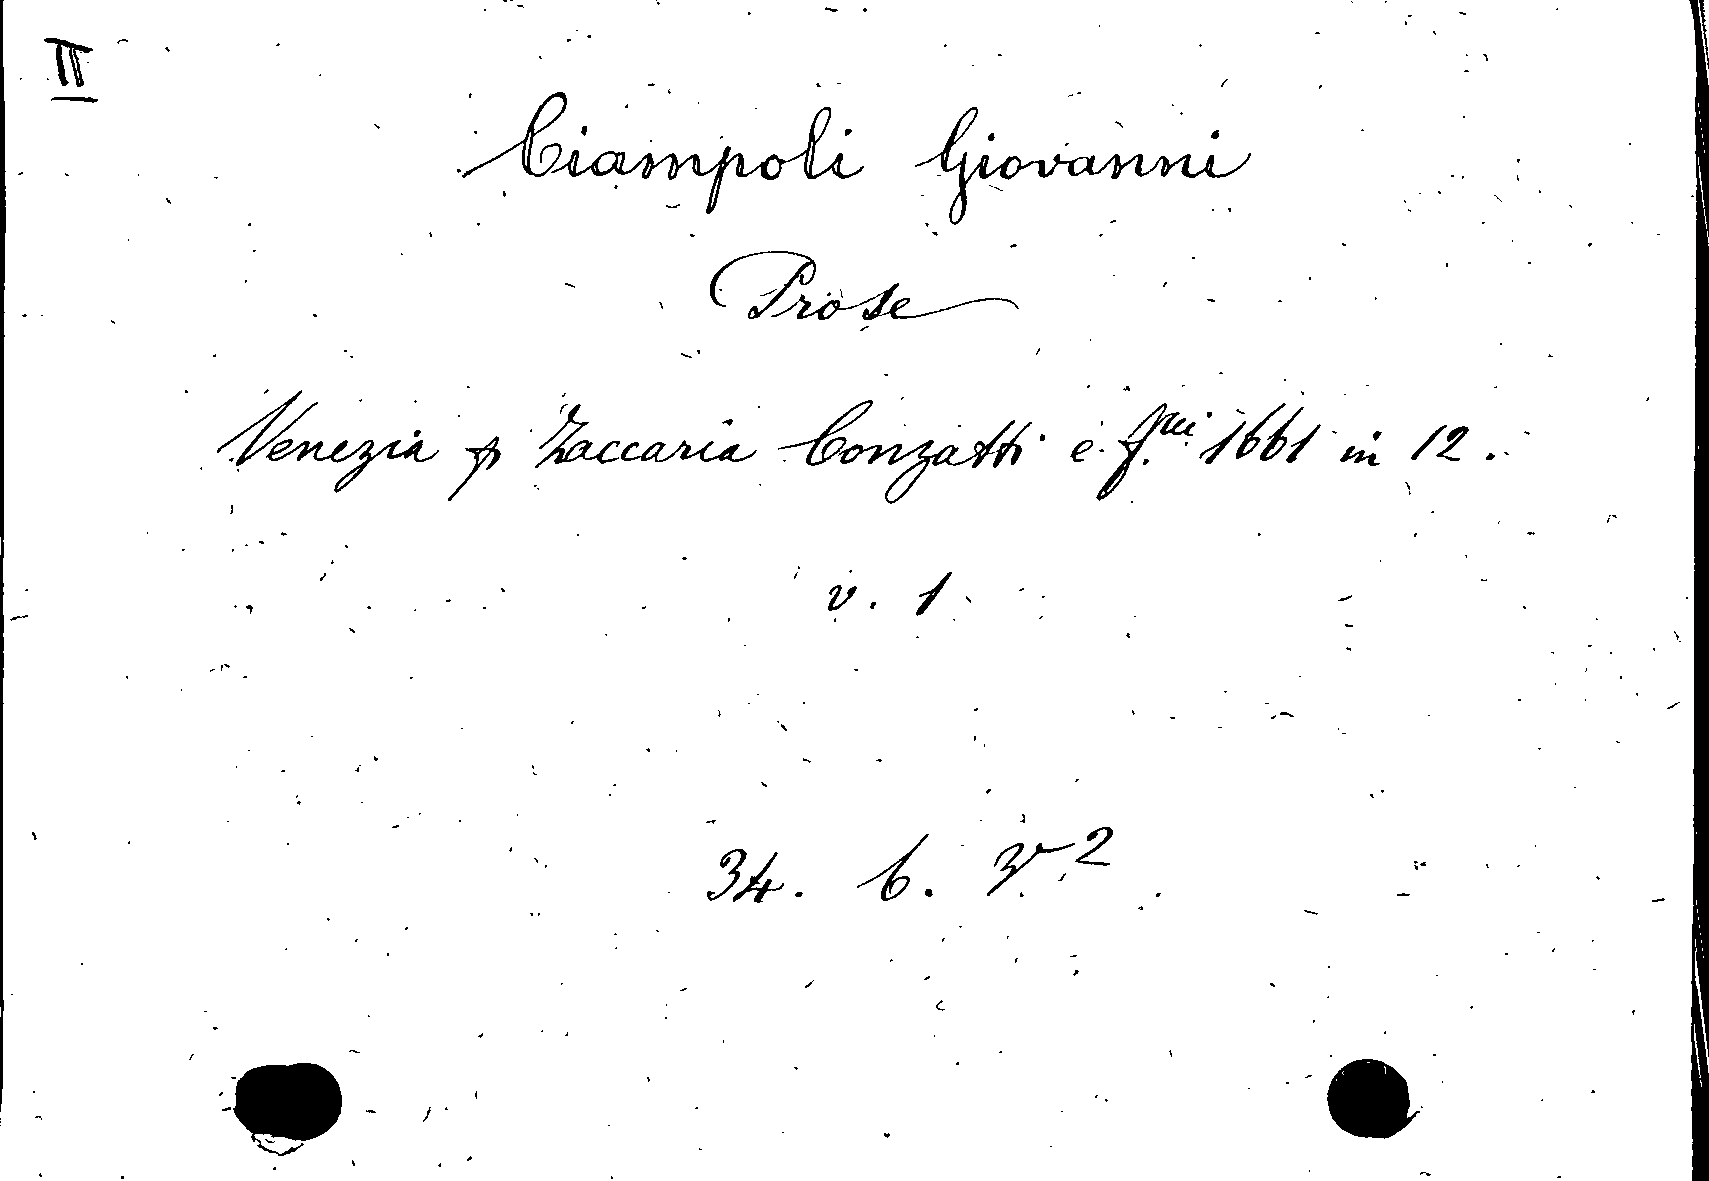 II
Ciampoli Giovanni
Prose
Venezia p Zaccaria Conzatti e f.lli 1661 in 12.
v. 1
34. b. 2